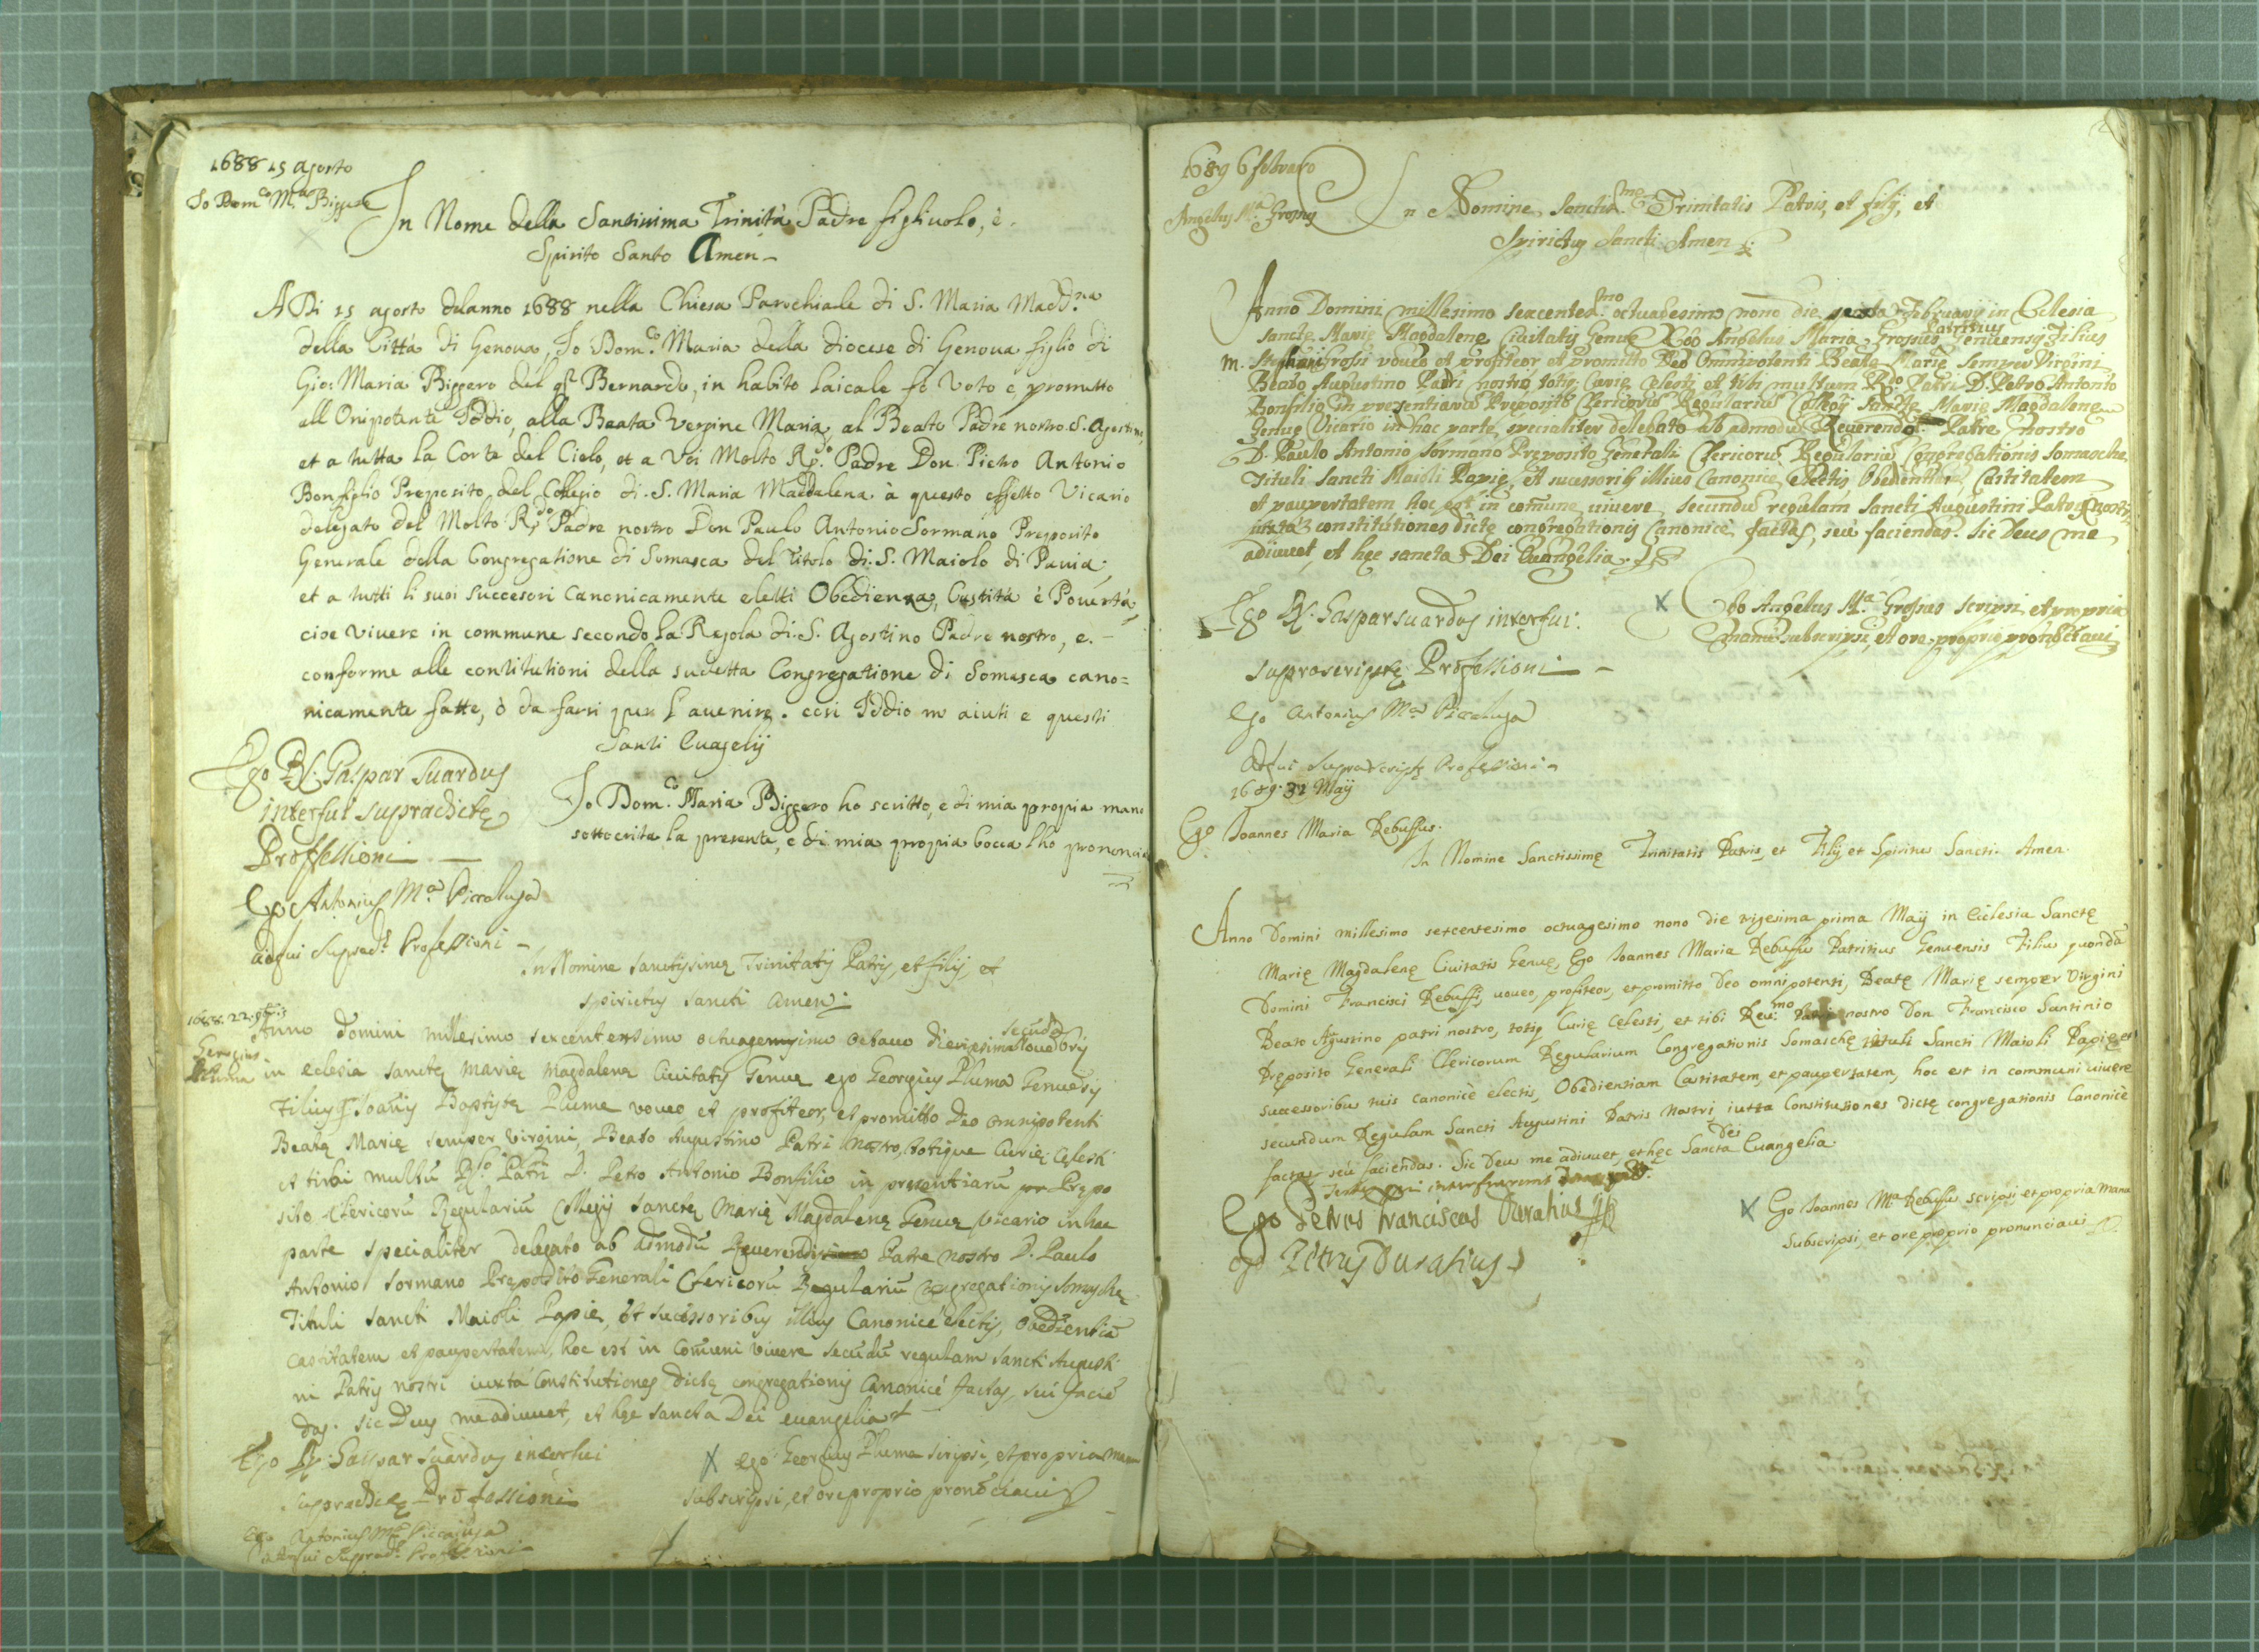 1688 15 agosto
Io Dom.co M.a Biggero
In Nome della Santissima Trinità Padre figliuolo, è
Spirito Santo Amen
A Di 15 agosto delanno 1688 nella Chiesa Parochiale di S. Maria Madd.na
della Città di Genova, Io Dom.co Maria della diocese di Genova figlio di
Gio: Maria Biggero del q.m Bernardo, in habito laicale fo Voto e prometto
all Onipotente Iddio, alla Beata Vergine Maria, al Beato Padre nostro S. Agostino,
et a tutta la Corte del Cielo, et a Voi Molto R.do Padre Don Pietro Antonio
Bonfiglio Preposito del Collegio di S. Maria Maddalena à questo effetto Vicario
delegato del Molto R.do Padre nostro Don Paulo Antonio Sormano Preposito
Generale della Congregatione di Somasca del Titolo di S. Maiolo di Pavia;
et a tutti li suoi Successori Canonicamente eletti Obedienza, Castità è Povertà
cioe Vivere in commune secondo la Regola di S. Agostino Padre nostro, e
conforme alle constitutioni della sudetta Congregatione di Somasca cano=
nicamente fatte, ò da farsi per l'avenire. cosi Iddio m aiuti e questi
Santi Evagelij
Ego D. Gaspar Suardus
interfui supradictę
Proffessioni
Io Dom.co Maria Biggero ho scritto, e di mia propia mano
sottoscrita la presente, e di mia propia bocca l'ho prononcia
Ego Antonius M.a Piccaluga
adfui Suprad.ę Professioni
1688. 22. 9bris
Georgius
Pluma
In Nomine sanctissimę Trinitatis Patris, et filij et
spirictus sancti amen
Anno Domini millesimo sexcentesimo octuagesimo octavo die vigesima secūda Novebris
in eclesia sanctę marię magdalenę Civitatis Genuę ego Georgius Pluma Genuēsis
Filius q. Ioānis Baptistę Plume voveo et profiteor, et promitto Deo omnipotenti
Beatę Marię semper Virgini, Beato Augustino Patri nostro, totique Curię Cęlesti
et tibi multū R.do Patri D. Petro Antonio Bonfilio in presentiarū Prępo
sito Clericorū Regulariū Collegij Sanctę Marię Magdalenę Genuę vicario in hac
parte specialiter delegato ab admodū Reverendo Patre nostro D. Paulo
Antonio Sormano Prępodito Generali Clericorū Regulariū Congregationis Somaschę
Tituli sancti Maioli Papię, et sucessoribus illius Canonicè electis, obedientiā
castitatem et paupertatem, hoc est in comuni vivere secūdū regulam sancti Augusti
ni Patris nostri iuxtà Constitutiones dictę congregationis Canonicè factas, seù facie
das. sic Deus me adiuvet, et hęc sancta Dei evangelia
Ego D. Gaspar Suardus interfui
supradictę Professioni
X ego Georgius Pluma scripsi, et propria manu
subscripsi, et ore proprio pronōciavi
Ego Antonius M.a Piccaluga
adfui Suprad.ę Professioni
1689 6 febraro
Angelus M.a Grossus
In Nomine Sanctis.me Trinitatis Patris, et filij, et
Spirictus Sancti Amen
Anno Domini millesimo sexcentes.mo octuagesimo nono die sexta Februarij in Eclesia
Sanctę Marię Magdalenę Civitatis Genuę Ego Angelus Maria Grossus Patritius Genuensis Filius
m. Stephani Grossi voveo et profiteor et promitto Deo Omnipotenti Beatę Marię Semper Virgini
Beato Augustino Patri nostro, totiq; Curię Celesti et tibi multum R.do Patri D. Petro Antonio
Bonfilio in presentiarū Preposito Clericorū Regulariū Collegij Sanctę Marię Magdalenę
Genuę Vicario in hac parte specialiter delegato ab admodū Reverendo Patre nostro
D. Paulo Antonio Sormano Preposito Generali Clericorū Regulariū Congregationis Somasche
Tituli Sancti Maioli Papię, et sucessorib; illius Canonice electis, Obedientiam Castitatem
et paupertatem hoc est in comune vivere secundū regulam Sancti Augustini Patris nostri
iuxta constitutiones dictę congregationis Canonicè factas, seù faciendas. Sic Deus me
adiuvet, et hęc sancta Dei Evangelia.
Ego D. Gaspar Suardus interfui
suprascriptę Professioni
X Ego Angelus M.a Grossus scripsi, et propria
manu subscripsi, et ore proprio pronōciavi
Ego Antonius M.a Piccaluga
adfui Suprascriptę Professioni
1689. 31 Maij
Ego Ioannes Maria Rebuffus.
In Nomine Sanctissimę Trinitatis Patris, et Filij et Spiritus Sancti. Amen.
Anno Domini millesimo sexcentesimo octuagesimo nono die trigesima prima Maij in Ecclesia Sanctę
Marię Magdalenę Civitatis Genuę, Ego Ioannes Maria Rebuffus Patritius Genuensis Filius quondā
Domini Francisci Rebuffi, voveo, profiteor, et promitto Deo omnipotenti, Beatę Marię semper Virgini
Beato Agustino patri nostro, totiq; Curię Celesti, et tibi Rev.mo Patri nostro Don Francisco Santinio
Pręposito Generali Clericorum Regularium Congregationis Somaschę tituli Sancti Maioli Papię, et
successoribus tuis canonicè electis, Obedientiam Castitatem, et paupertatem, hoc est in communi vivere
secundum Regulam Sancti Augustini Patris Nostri iuxta Constitutiones dictę congregationis Canonicè
factas, seù faciendas. Sic Deus me adiuvet, et hęc Sancta Dei Evangelia.
Testes qui interfuerunt
Ego Petrus Franciscus Duratius
ego Petrus Duratius
X Ego Ioannes M.a Rebuffus scripsi, et propria manu
Subscripsi, et ore proprio pronunciavi